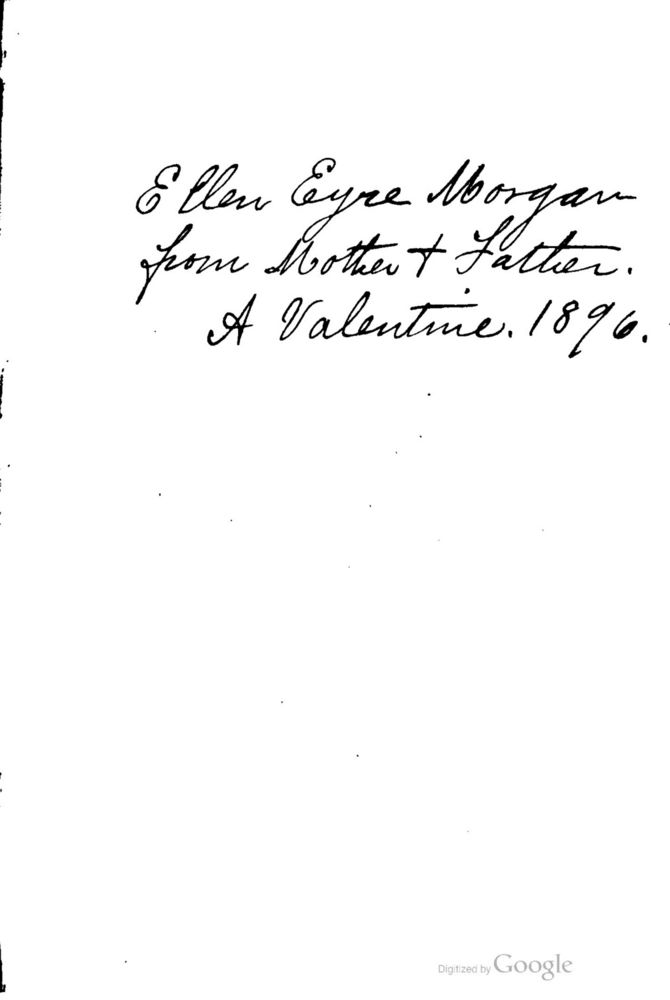 Ellen Eyre Morgan
from Mother + Father.
A Valentine. 1896.
Digitized by Google